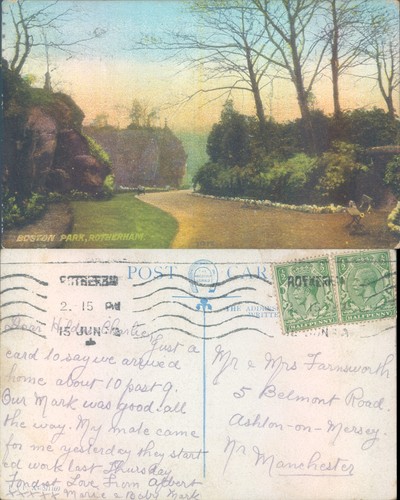 BOSTON PARK, ROTHERHAM.
POST CARD
ROTHERHAM
2. 15 PM
15 JUN
ROTHERHAM
THE ADDRESS
WRITTEN
Dear Hilda &
Just a
card to say we arrived
home about 10 past 9.
Our Mark was good all
the way. My mate came
for me yesterday they start
ed work last Thursday
Fondest Love from Albert
xxxxx Marie & Baby Mark
Mr & Mrs Farnsworth
5 Belmont Road.
Ashton-on-Mersey.
Nr Manchester